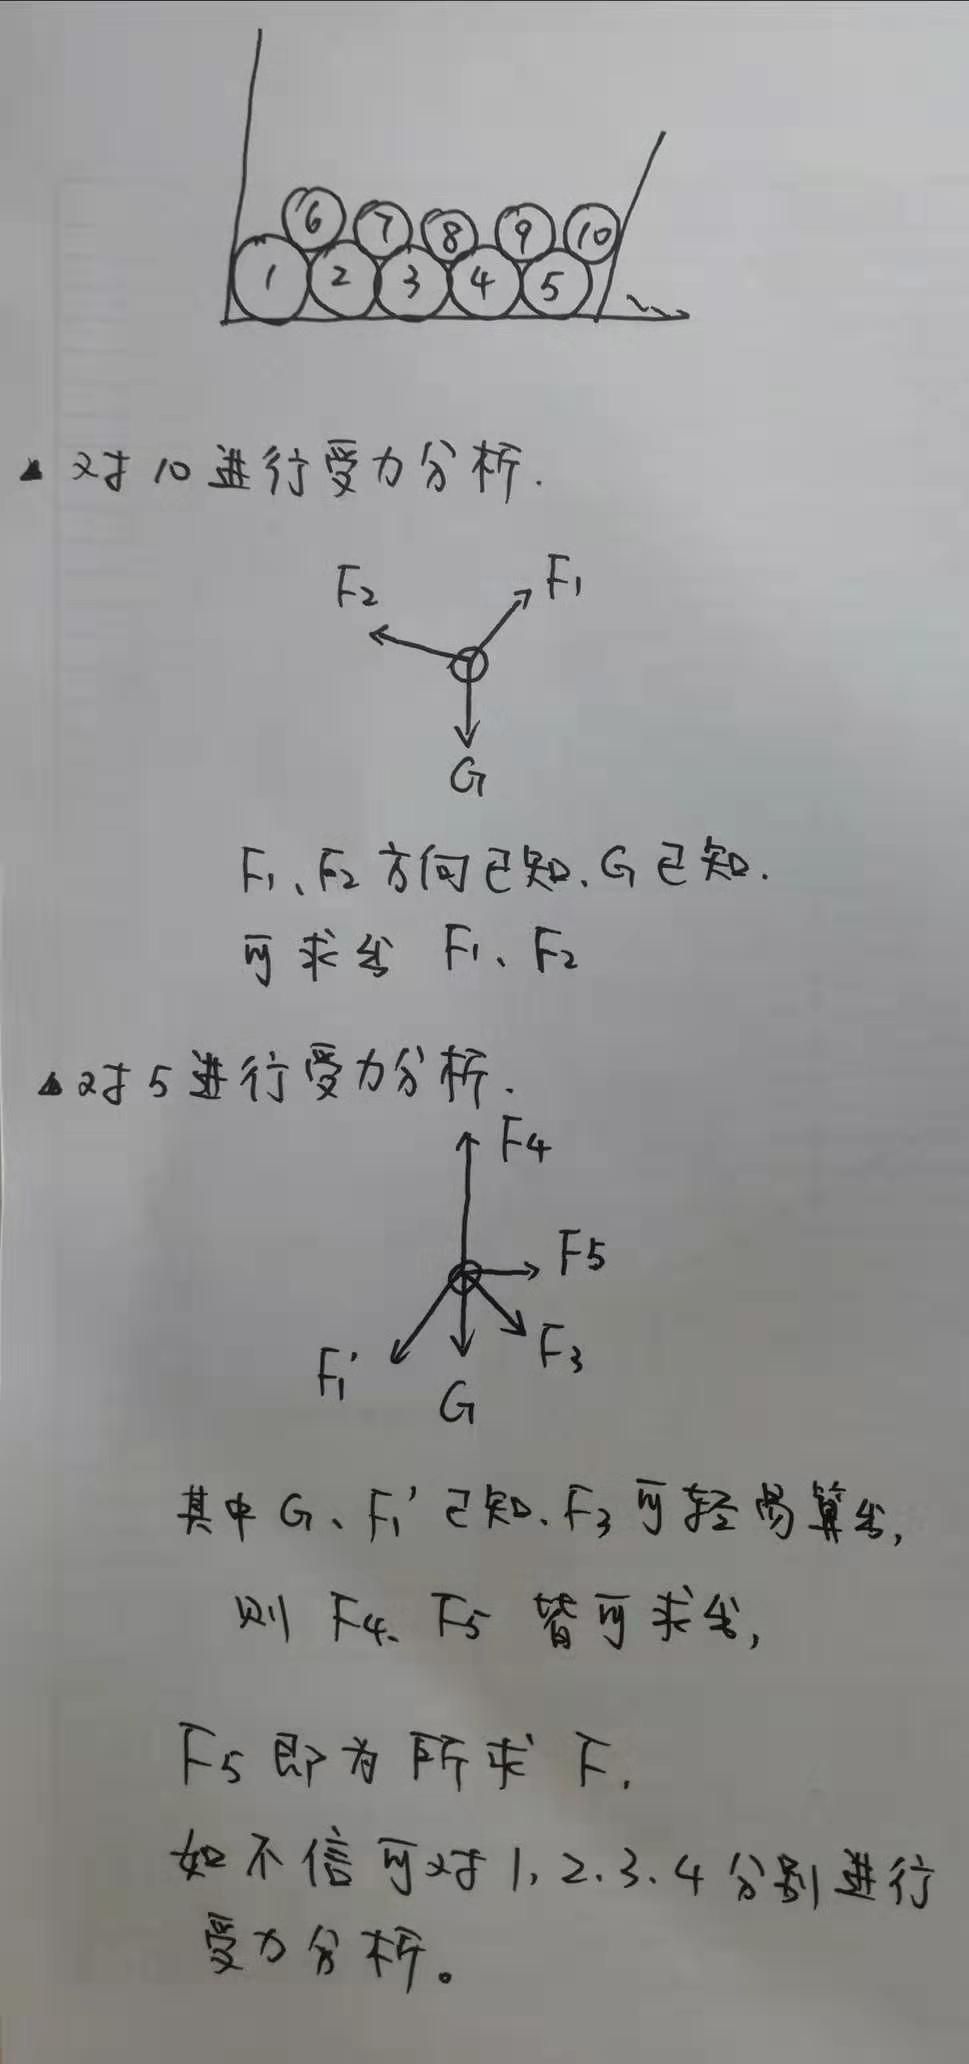 6 7 8 9 10
1 2 3 4 5
▲ 对10进行受力分析.
F2 F1
G
F1、F2方向已知.G已知.
可求出 F1、F2
▲对5进行受力分析.
F4
F5
F3
F1'
G
其中G、F1'已知.F3可轻易算出,
则 F4、F5 皆可求出,
F5即为所求F.
如不信可对1,2.3.4分别进行
受力分析。